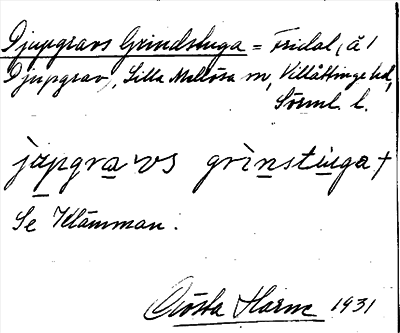 Djupgravs Grindstuga = Fridal, å /
Djupgrav, Lilla Mellösa sn, Villåttinge hd,
Sörml. l.
jupgravs grinstuga +
Se Klämman.
Gösta Harne 1931